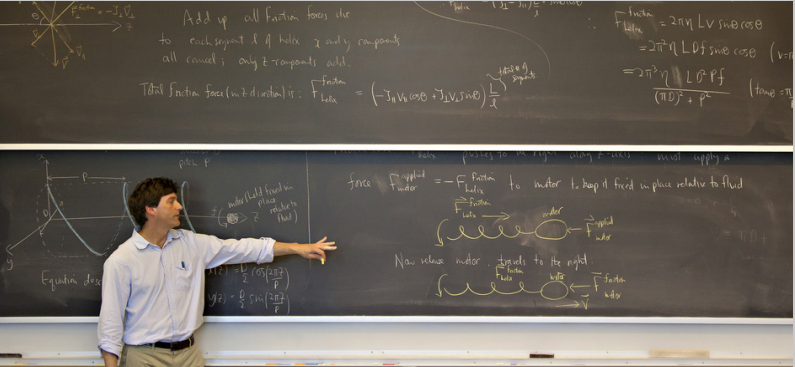 Add up all friction forces due
to each segment l of helix x and y components
all cancel; only z-components add.
Total friction force (in z direction) is: F helix friction = (-J∥ V∥ cosθ + J⊥ V⊥ sinθ) L/l
total # of segments
F helix friction = 2πη L v sinθ cosθ
= 2π²η L D f sinθ cosθ
= 2π³η L D² P f
(πD)² + P²
(tanθ = π
pitch P
x
P
D
z
y
(motor held fixed in place relative to fluid)
Equation des
x(z) = D/2 cos(2πz/P)
y(z) = D/2 sin(2πz/P)
helix pushes to the right along z-axis, must apply a
force F motor applied = -F helix friction to motor to keep it fixed in place relative to fluid
F friction helix
motor
F applied motor
Now release motor. travels to the right.
F friction helix
motor
F friction motor
V